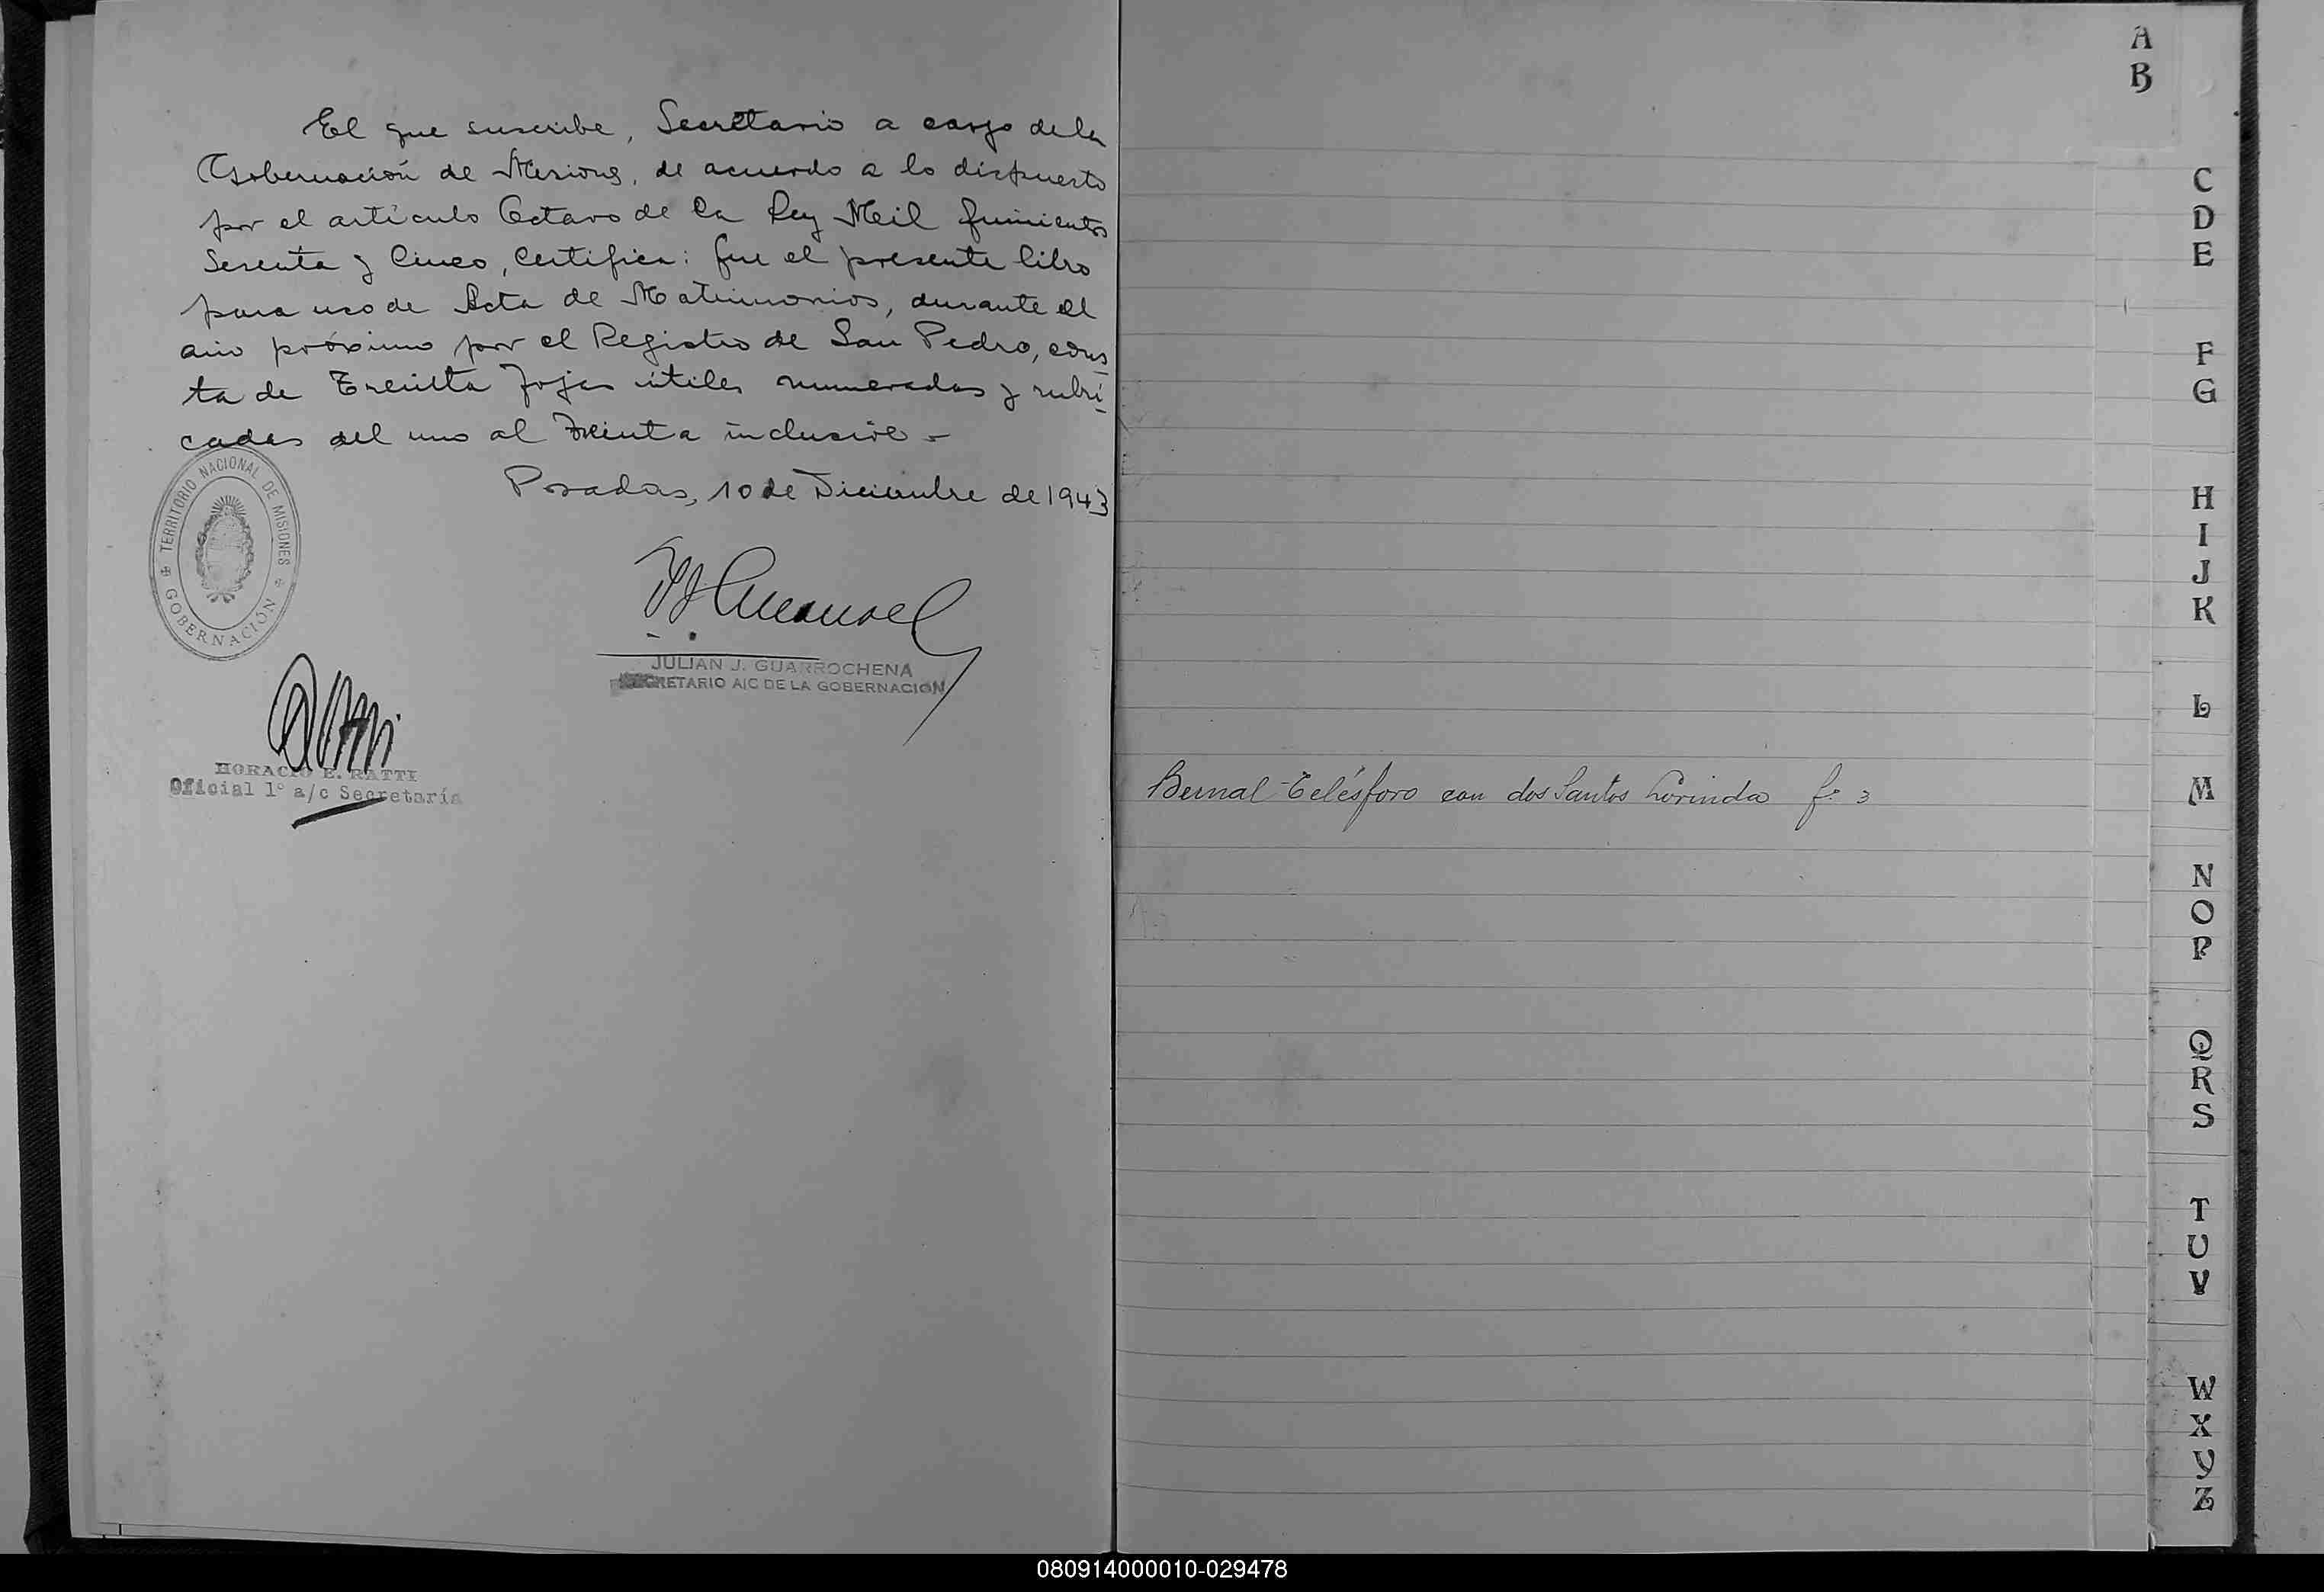 El que suscribe, Secretario a cargo de la
Gobernación de Misiones, de acuerdo a lo dispuesto
por el artículo Octavo de la Ley Mil Quinientos
Sesenta y Cinco, Certifica: Que el presente libro
para uso de Acta de Matrimonios, durante el
año próximo por el Registro de San Pedro, cons
ta de Treinta fojas útiles numeradas y rubri
cadas del uno al Treinta inclusive -
Posadas, 10 de Diciembre de 1943
TERRITORIO NACIONAL DE MISIONES
GOBERNACIÓN
JULIAN J. GUARROCHENA
SECRETARIO A/C DE LA GOBERNACION
HORACIO E. RATTI
Oficial 1° a/c Secretaría
A
B
C
D
E
F
G
H
I
J
K
L
Bernal Telésforo con dos Santos Lorinda f. 3
M
N
O
P
Q
R
S
T
U
V
W
X
Y
Z
080914000010-029478